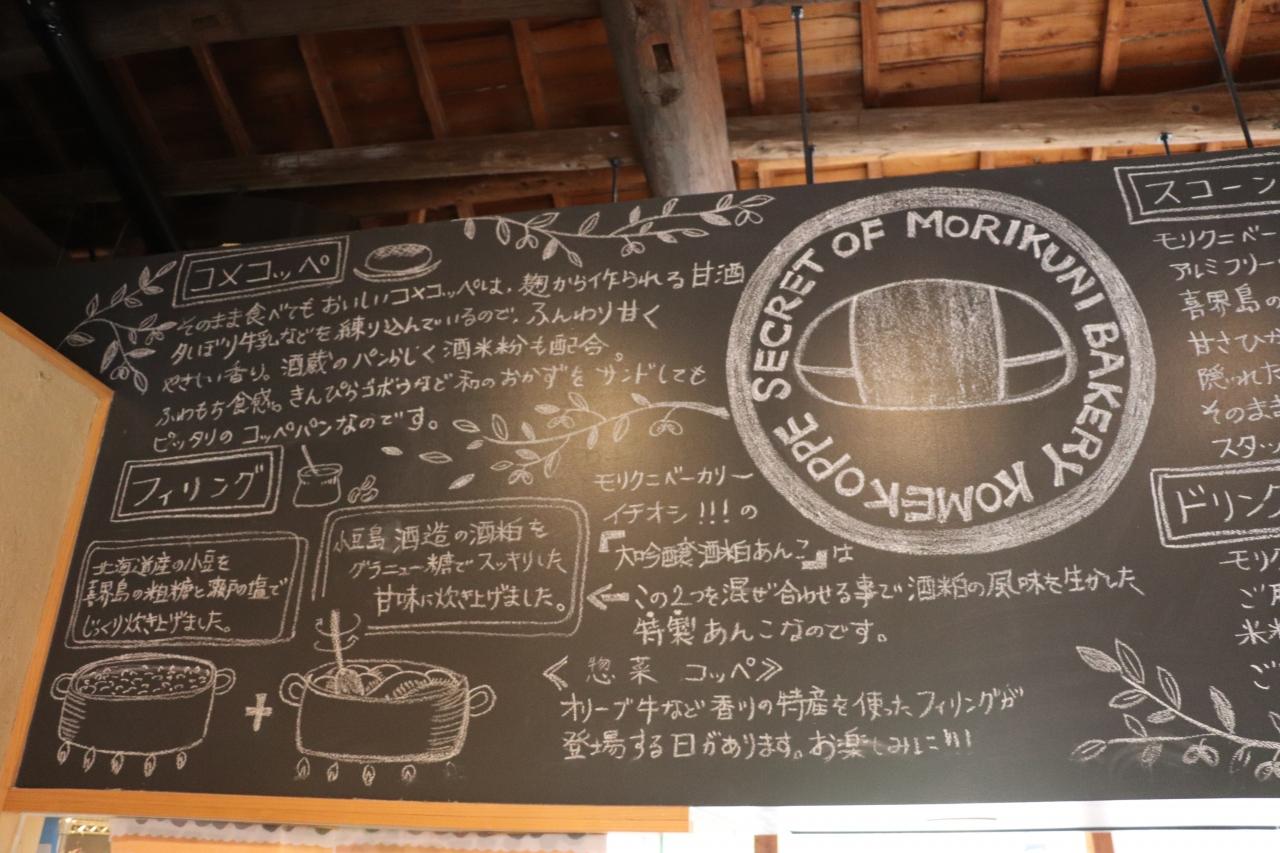 コメコッペ
そのまま食べてもおいしいコメコッペは、麹から作られる甘酒
タしぼり牛乳などを練り込んでいるので、ふんわり甘く
やさしい香り。酒蔵のパンらしく酒米粉も配合。
ふわもち食感。きんぴらゴボウなど和のおかずをサンドしても
ピッタリのコッペパンなのです。
フィリング
北海道産の小豆を
喜界島の粗糖と瀬戸の塩で
じっくり炊き上げました。
+
小豆島酒造の酒粕を
グラニュー糖でスッキリした
甘味に炊き上げました。
モリクニベーカリー
イチオシ!!!の
『大吟醸酒粕あんこ』は
←この2つを混ぜ合わせる事で酒粕の風味を生かした
特製あんこなのです。
≪惣菜 コッペ≫
オリーブ牛など香川の特産を使ったフィリングが
登場する日があります。お楽しみに!!!
SECRET OF MORIKUNI BAKERY KOMEKOPPE
スコーン
モリクニベー
アルミフリー
喜界島の
甘さひか
隠れた
そのまま
スタッ
ドリンク
モリク
ご
米
ご